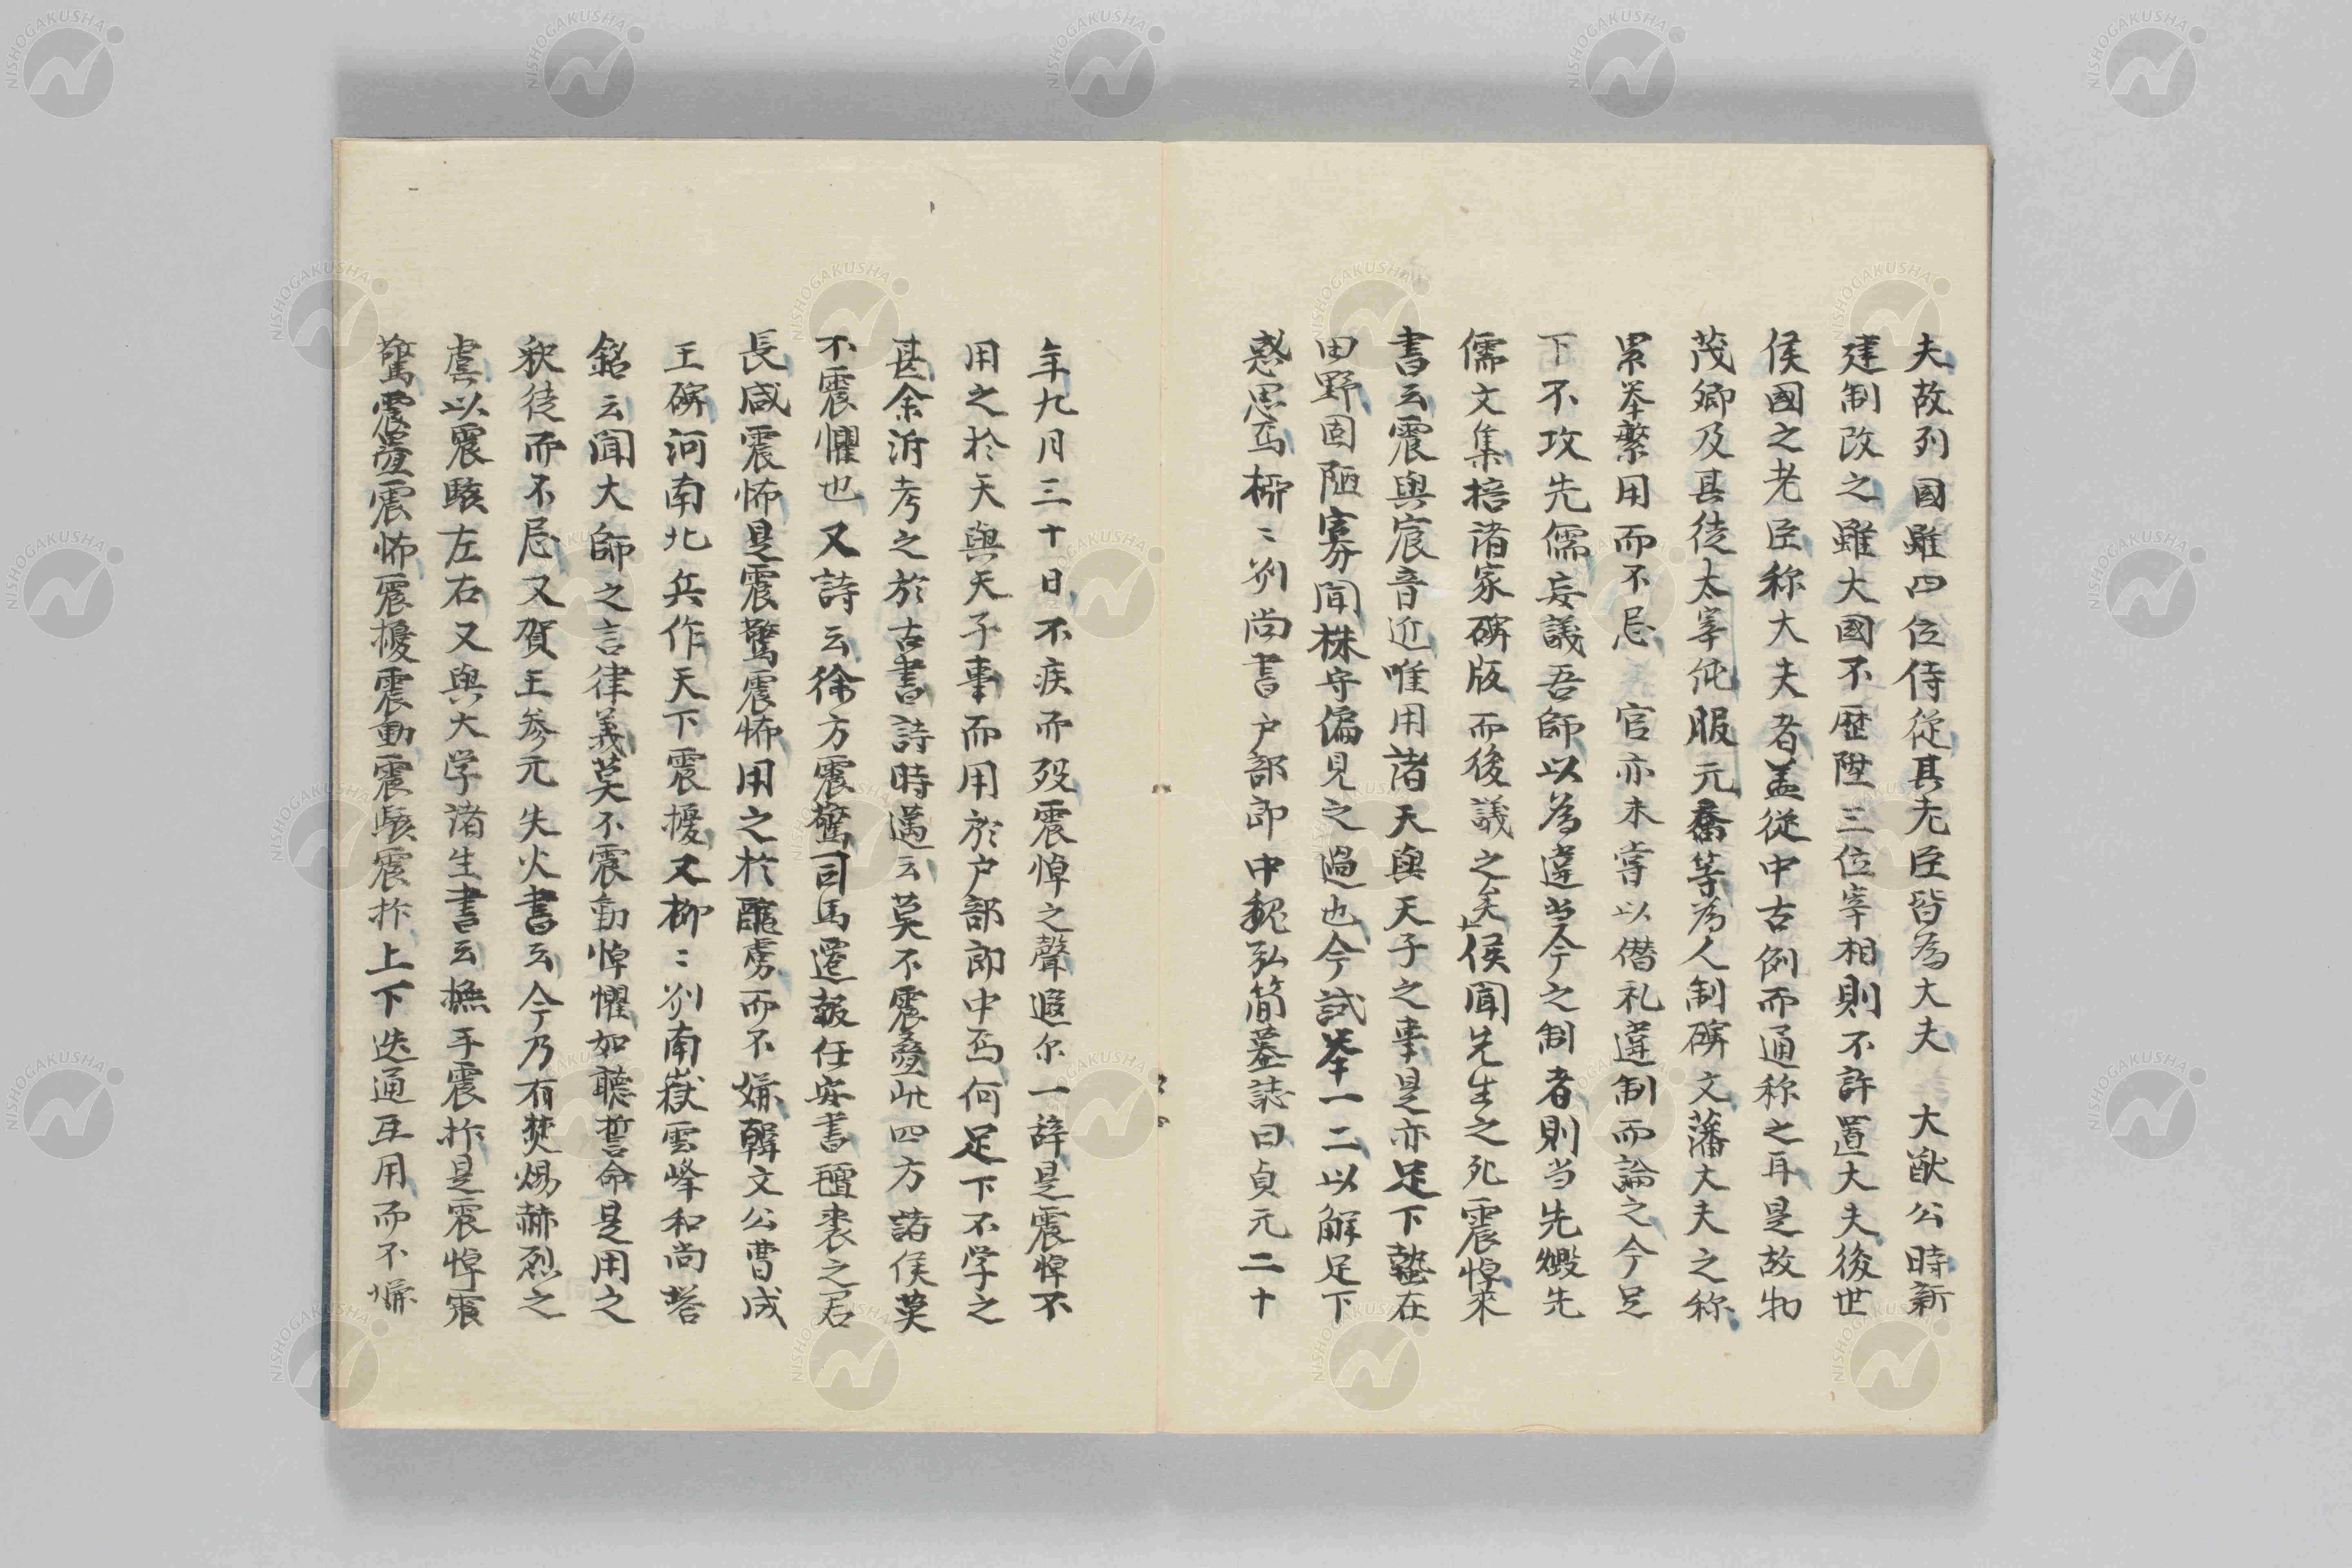 夫故列國雖四位侍從其老臣皆為大夫　大猷公時新
建制改之雖大國不歴陞三位宰相則不許置大夫後世
侯國之老臣称大夫者盖従中古例而通称之耳是故物
茂卿及其徒太宰純服元喬等為人制碑文藩大夫之称
累举繁用而不忌　官亦未嘗以僣礼違制而論之今足
下不攻先儒妄議吾師以為違当今之制者則当先燬先
儒文集掊諸家碑版而後議之矣侯聞先生之死震悼来
書云震與宸音近唯用諸天與天子之事是亦足下蟄在
田野固陋寡聞株守偏見之過也今試举一二以解足下
惑思焉柳〻州尚書户部郎中魏弘簡墓誌曰貞元二十
年九月三十日不疾而歿震悼之聲遐尓一辞是震悼不
用之於天與天子事而用於户部郎中焉何足下不学之
甚余泝考之於古書詩時邁云莫不震疊此四方諸侯莫
不震懼也又詩云徐方震驚司馬遷報任安書氊裘之君
長咸震怖是震驚震怖用之於醜虜而不嫌韓文公曹成
王碑河南北兵作天下震擾又柳〻州南嶽雲峰和尚塔
銘云聞大師之言律義莫不震動悼懼如聽誓命是用之
釈徒而不忌又賀王参元失火書云今乃有焚煬赫烈之
虞以震駭左右又與大学諸生書云撫手震抃是震悼震
驚震疊震怖震擾震動震駭震抃上下迭通互用而不嫌
NISHOGAKUSHA